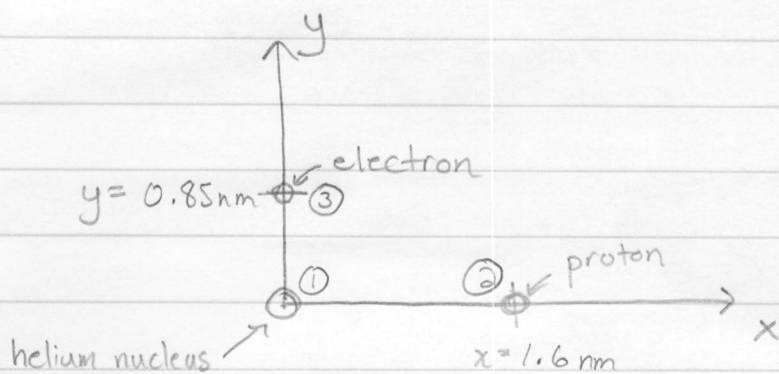 y
electron
y= 0.85nm ③
① ② proton
helium nucleus
x=1.6 nm
x